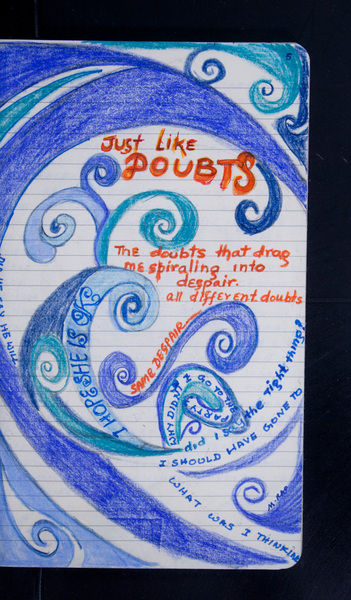 5
JUST LIKE
DOUBTS
The doubts that drag
me spiraling into
despair.
all different doubts
SAME DESPAIR
I HOPE SHE IS OK
WHY DIDN'T I GO TO THE
PARTY
did I say the right thing?
I SHOULD HAVE GONE TO
WHAT WAS I THINKING